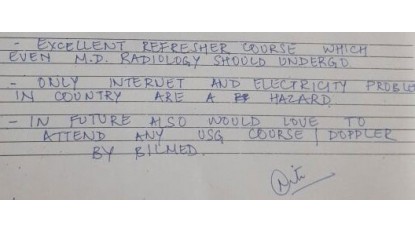 - EXCELLENT REFRESHER COURSE WHICH
EVEN M.D. RADIOLOGY SHOULD UNDERGO
- ONLY INTERNET AND ELECTRICITY PROBLE
IN COUNTRY ARE A HAZARD.
- IN FUTURE ALSO WOULD LOVE TO
ATTEND ANY USG COURSE | DOPPLER
BY BILMED.